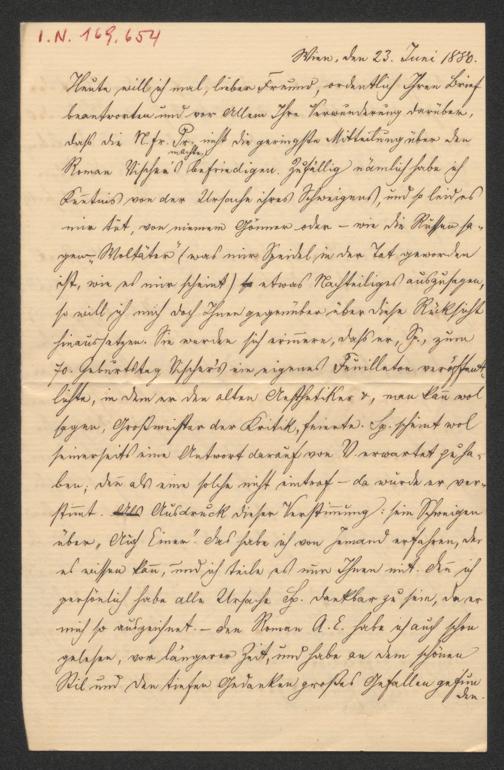 I.N. 169.654
Wien, den 23. Juni 1880.
Heute will ich mal, lieber Freund, ordentlich Ihren Brief
beantworten und vor Allem Ihre Verwunderung darüber,
daß die N. fr. Pr. nicht die geringste Mitteilung über den
Roman Vischer's machte, befriedigen. Zufällig nämlich habe ich
Kentnis von der Ursache ihres Schweigens, und so leid es
mir tut, von meinem Gönner oder – wie die Russen sa-
gen – "Woltäter" (was mir Speidel in der Tat geworden
ist, wie es mir scheint) etwas Nachteiliges auszusagen,
so will ich mich doch Ihnen gegenüber über diese Rücksicht
hinaussetzen. Sie werden sich erinnern, daß er, Sp., zum
70. Geburtstag Vischer's ein eigenes Feuilleton veröffent-
lichte, in dem er den alten Aesthetiker &, man kan wol
sagen, Großmeister der Kritik, feierte. Sp. scheint wol
seinerseits eine Antwort darauf von V. erwartet zu ha-
ben; den als eine solche nicht eintraf – da wurde er ver-
stimt. Als Ausdruck dieser Verstimmung: sein Schweigen
über "Auch Einer". Das habe ich von Jemand erfahren, der
es wissen kan, und ich teile es nur Ihnen mit. Den ich
persönlich habe alle Ursache Sp. dankbar zu sein, da er
mich so auszeichnet. – Den Roman A. E. habe ich auch schon
gelesen, vor längerer Zeit, und habe an dem schönen
Stil und den tiefen Gedanken großes Gefallen gefun
den.